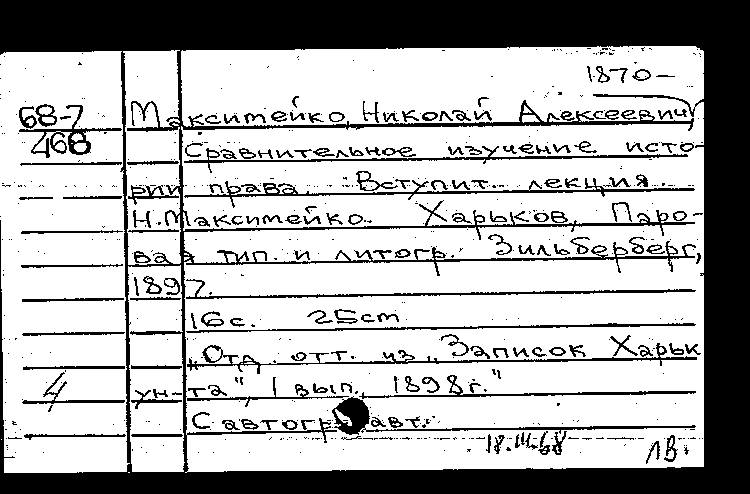 1870-
68-7 Максимейко, Николай Алексеевич
468 Сравнительное изучение исто-
рии права. Вступит. лекция
Н.Максимейко. Харьков, Паро-
вая тип. и литогр. Зильберберг,
1897.
16с. 25cm
„Отд. отт. из „Записок Харьк
4 ун-та", 1 вып., 1898г."
С автогр. авт.
18.III-68 ЛВ.